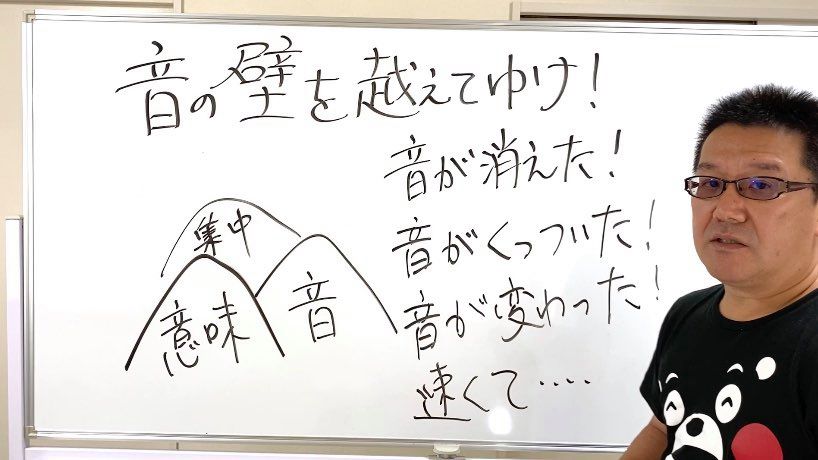 音の壁を越えてゆけ!
音が消えた!
音がくっついた!
音が変わった!
速くて‥‥
集中
意味
音